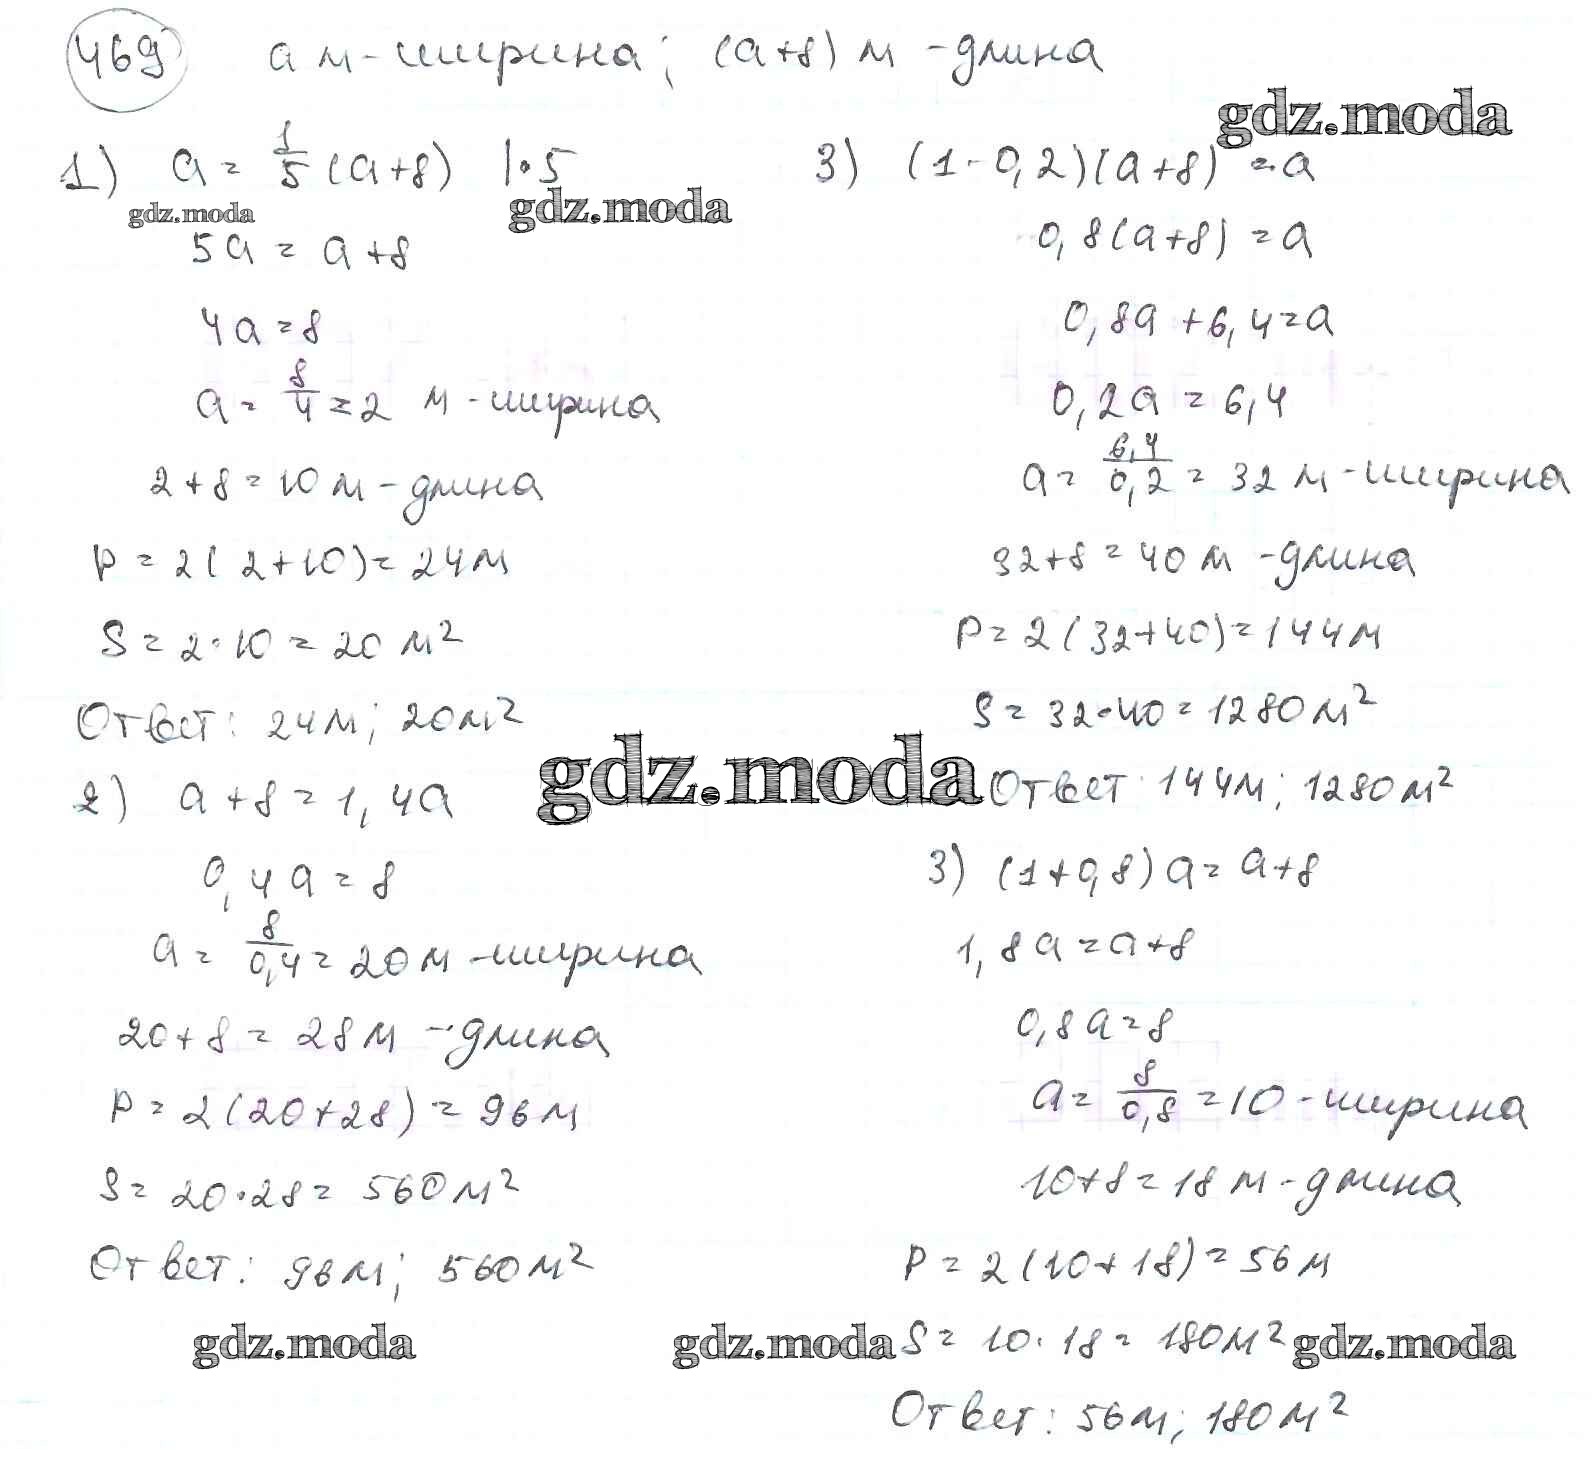 469 а м - ширина; (а+8) м - длина
gdz.moda
1) a = 1/5 (a+8) |·5
gdz.moda gdz.moda
5a = a+8
4a = 8
a = 8/4 = 2 м - ширина
2+8 = 10 м - длина
P = 2(2+10) = 24 м
S = 2·10 = 20 м²
Ответ: 24 м; 20 м²
gdz.moda
2) a+8 = 1,4a
0,4a = 8
a = 8/0,4 = 20 м - ширина
20+8 = 28 м - длина
P = 2(20+28) = 96 м
S = 20·28 = 560 м²
Ответ: 96 м; 560 м²
gdz.moda
3) (1-0,2)(a+8) = a
0,8(a+8) = a
0,8a+6,4 = a
0,2a = 6,4
a = 6,4/0,2 = 32 м - ширина
32+8 = 40 м - длина
P = 2(32+40) = 144 м
S = 32·40 = 1280 м²
Ответ 144 м; 1280 м²
3) (1+0,8)a = a+8
1,8a = a+8
0,8a = 8
a = 8/0,8 = 10 - ширина
10+8 = 18 м - длина
P = 2(10+18) = 56 м
gdz.moda S = 10·18 = 180 м² gdz.moda
Ответ: 56 м; 180 м²